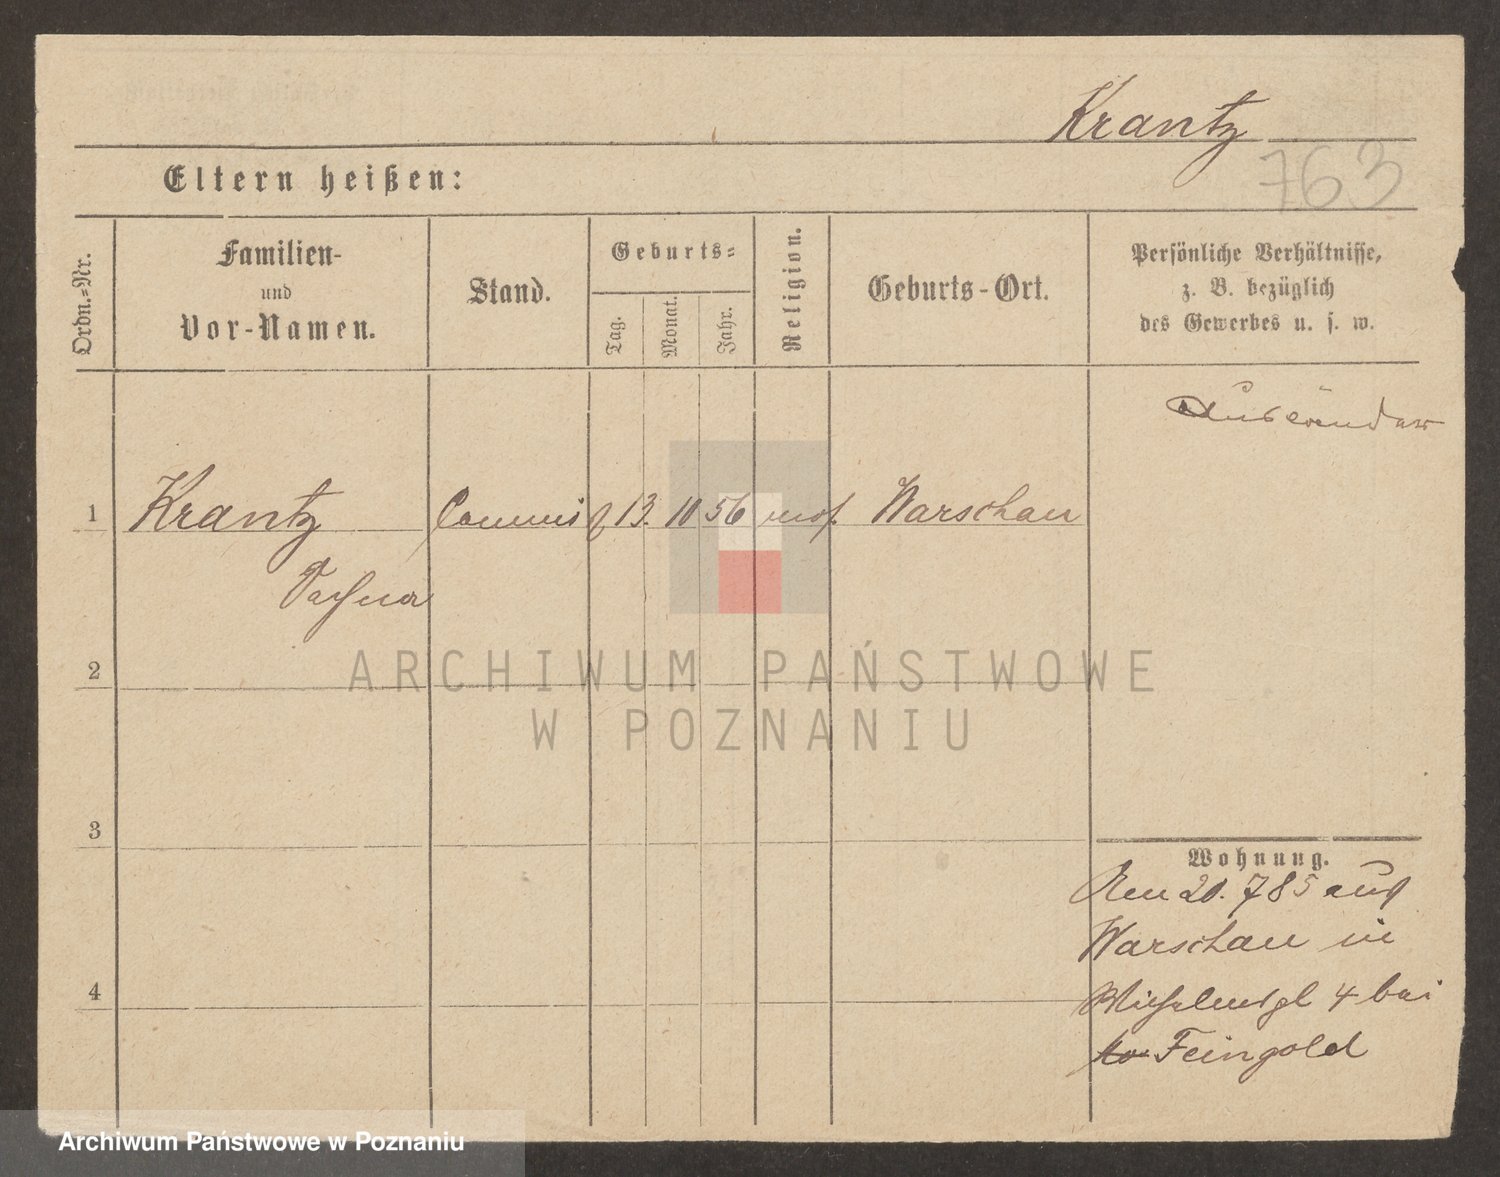 Krantz
763
Eltern heißen:
Ordn.-Nr.
Familien-
und
Vor-Namen.
Stand.
Geburts-
Tag.
Monat.
Jahr.
Religion.
Geburts-Ort.
Persönliche Verhältnisse,
z. B. bezüglich
des Gewerbes u. s. w.
Ausländer
1 Krantz Commis 13. 10 56 mos. Warschau
2
3
4
Wohnung.
Am 20. 7 85 aus
Warschau in
Wilhelmspl 4 bei
Feingold
ARCHIWUM PAŃSTWOWE
W POZNANIU
Archiwum Państwowe w Poznaniu